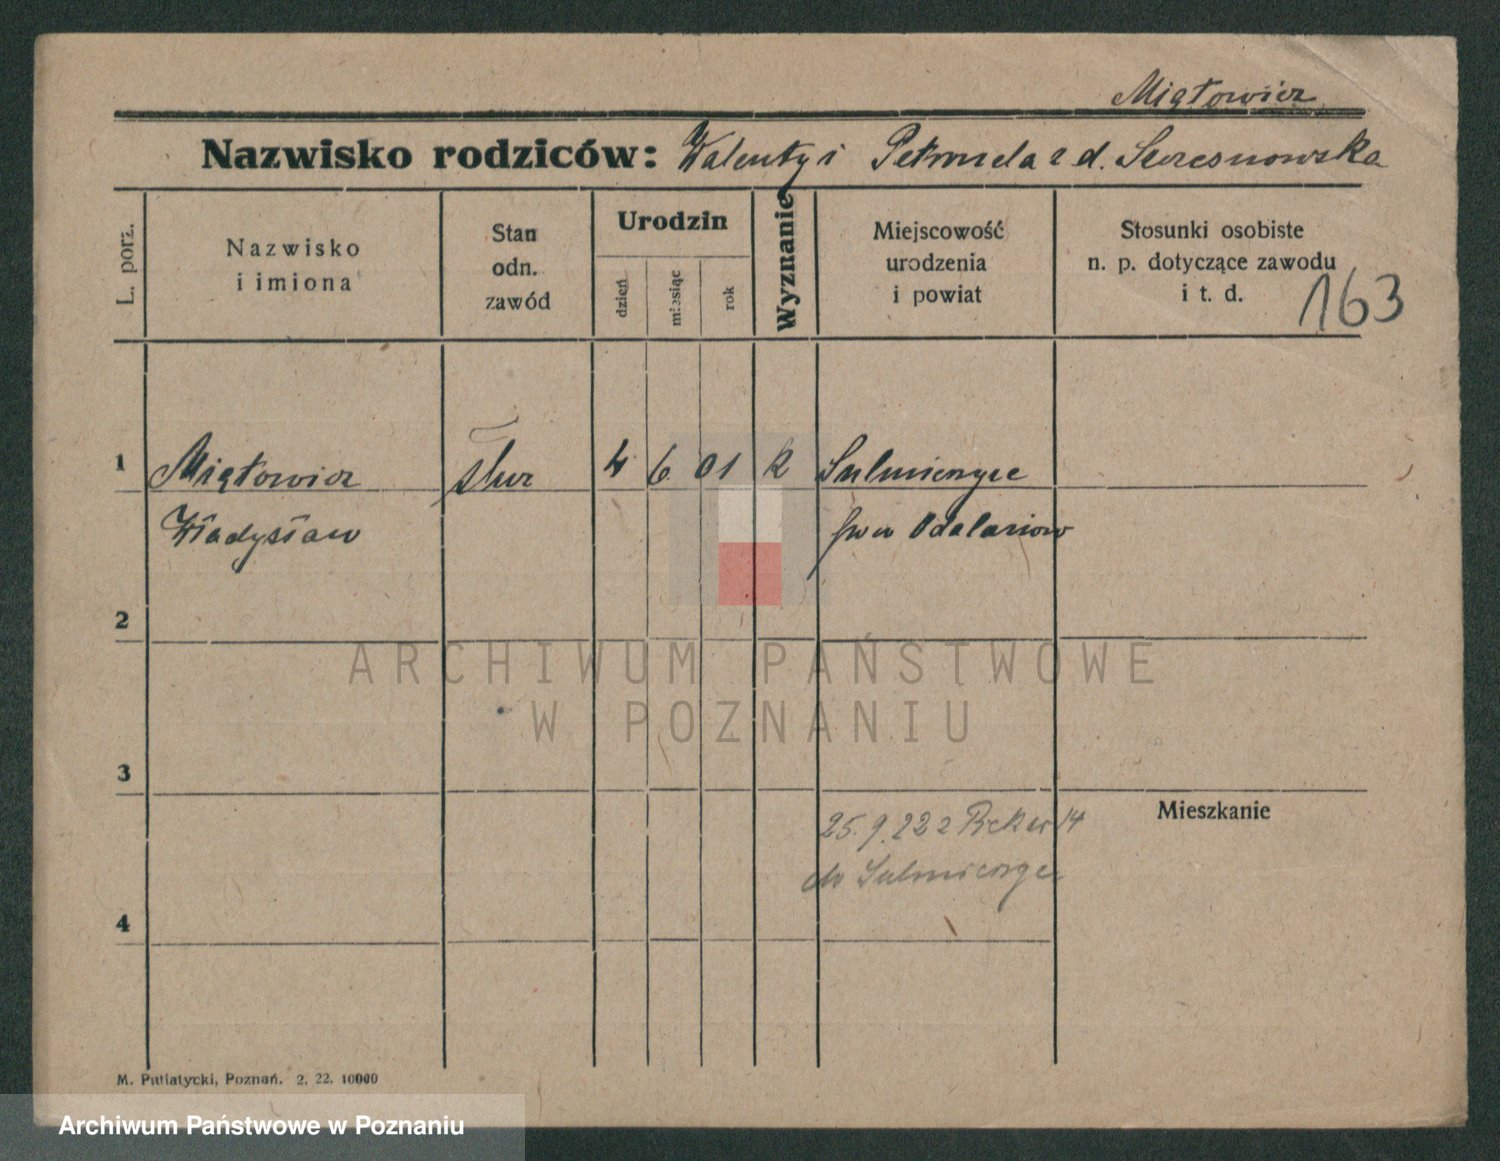 Miątowicz
Nazwisko rodziców: Walenty i Petronela z d. Szczesnowska
L. porz.
Nazwisko
i imiona
Stan
odn.
zawód
Urodzin
dzień
miesiąc
rok
Wyznanie
Miejscowość
urodzenia
i powiat
Stosunki osobiste
n. p. dotyczące zawodu
i t. d.
163
1 Miątowicz 4 6 01 k Sulmierzyce
Władysław Odalanow
2
ARCHIWUM PAŃSTWOWE
W POZNANIU
3
25. 9. 22 z 14
do Sulmierzyc
Mieszkanie
4
M. Putiatycki, Poznań. 2. 22. 10000
Archiwum Państwowe w Poznaniu